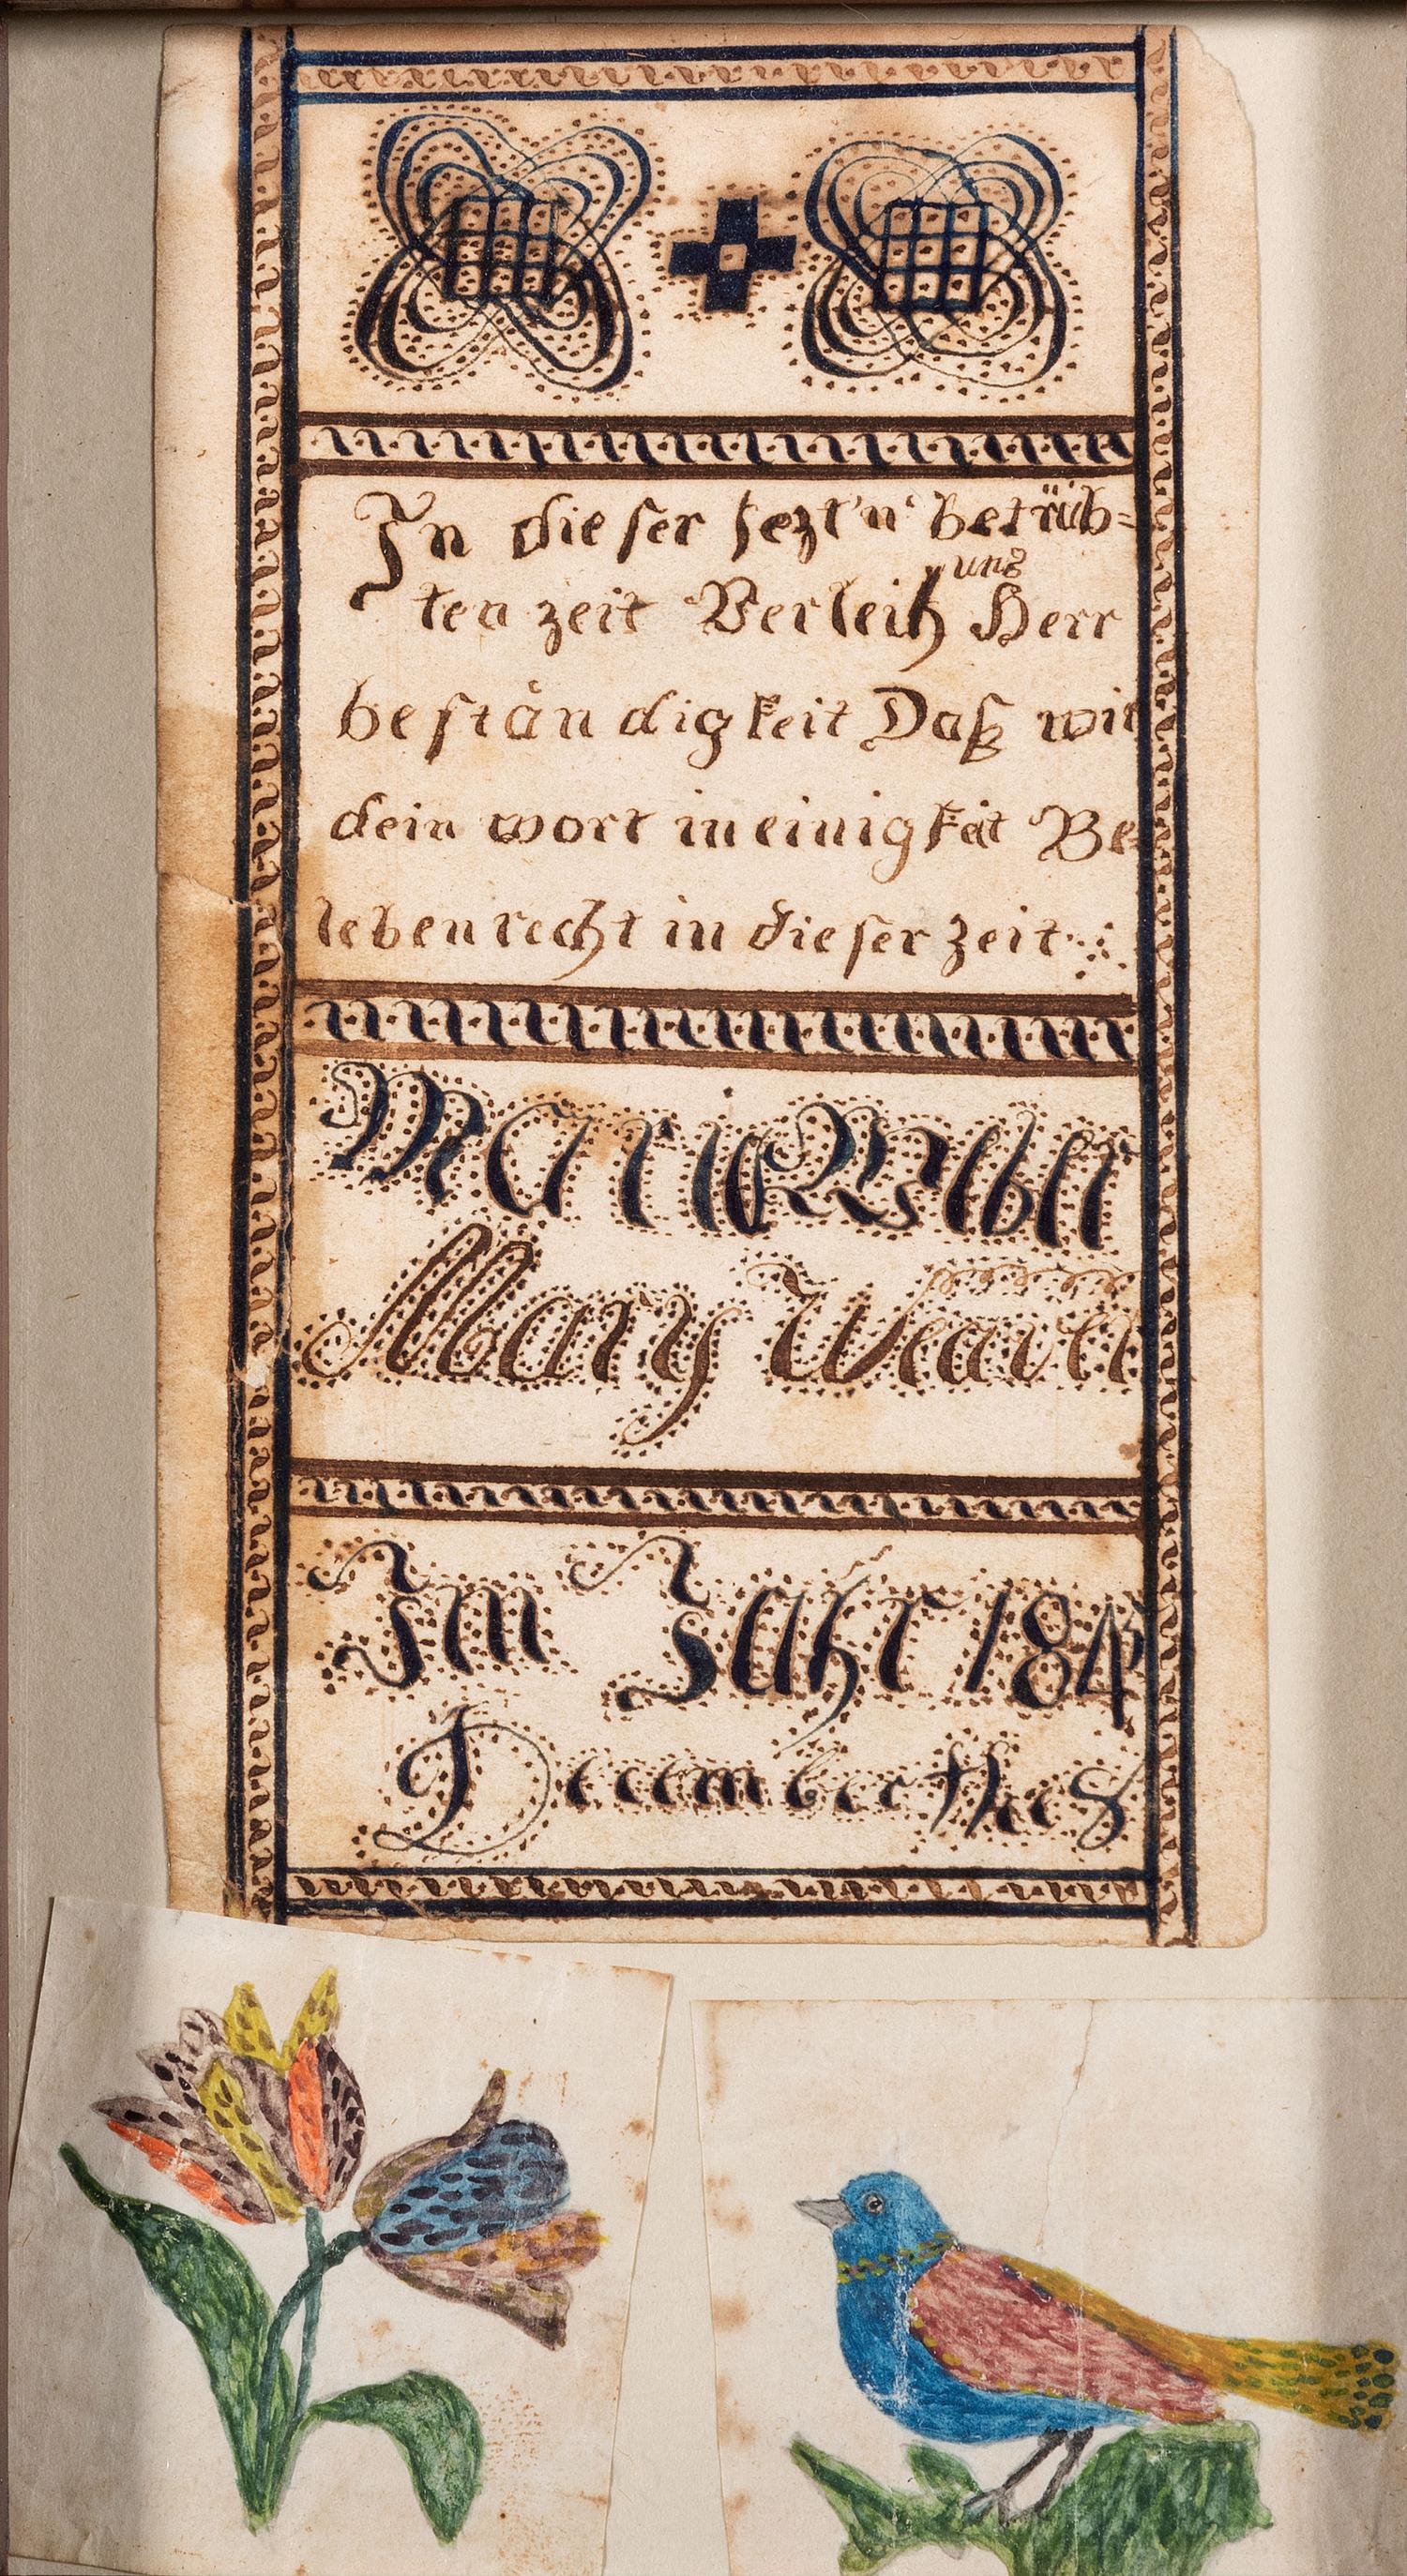 In dieser lezt'n' Betrüb=
ten zeit Verleih uns Herr
beständigkeit Daß wir
dein wort in einigkät Be=
leben recht in dieser zeit
Maria Weber
Mary Weaver
Im Jahr 184
December the 8